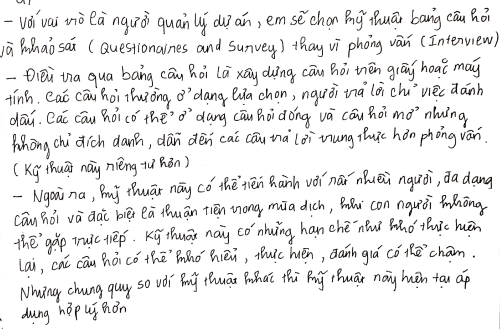 - Với vai trò là người quản lý dự án, em sẽ chọn kỹ thuật bảng câu hỏi
và khảo sát (Questionaires and Survey) thay vì phỏng vấn (Interview)
- Điều tra qua bảng câu hỏi là xây dựng câu hỏi trên giấy hoặc máy
tính. Các câu hỏi thường ở dạng lựa chọn, người trả lời chỉ việc đánh
dấu. Các câu hỏi có thể ở dạng câu hỏi đóng và câu hỏi mở nhưng
không chỉ đích danh, dẫn đến các câu trả lời trung thực hơn phỏng vấn.
(Kỹ thuật này riêng tư hơn)
- Ngoài ra, kỹ thuật này có thể tiến hành với rất nhiều người, đa dạng
câu hỏi và đặc biệt là thuận tiện trong mùa dịch, khi con người không
thể gặp trực tiếp. Kỹ thuật này có những hạn chế như khó thực hiện
lại, các câu hỏi có thể khó hiểu, thực hiện, đánh giá có thể chậm.
Nhưng chung quy so với kỹ thuật khác thì kỹ thuật này hiện tại áp
dụng hợp lý hơn